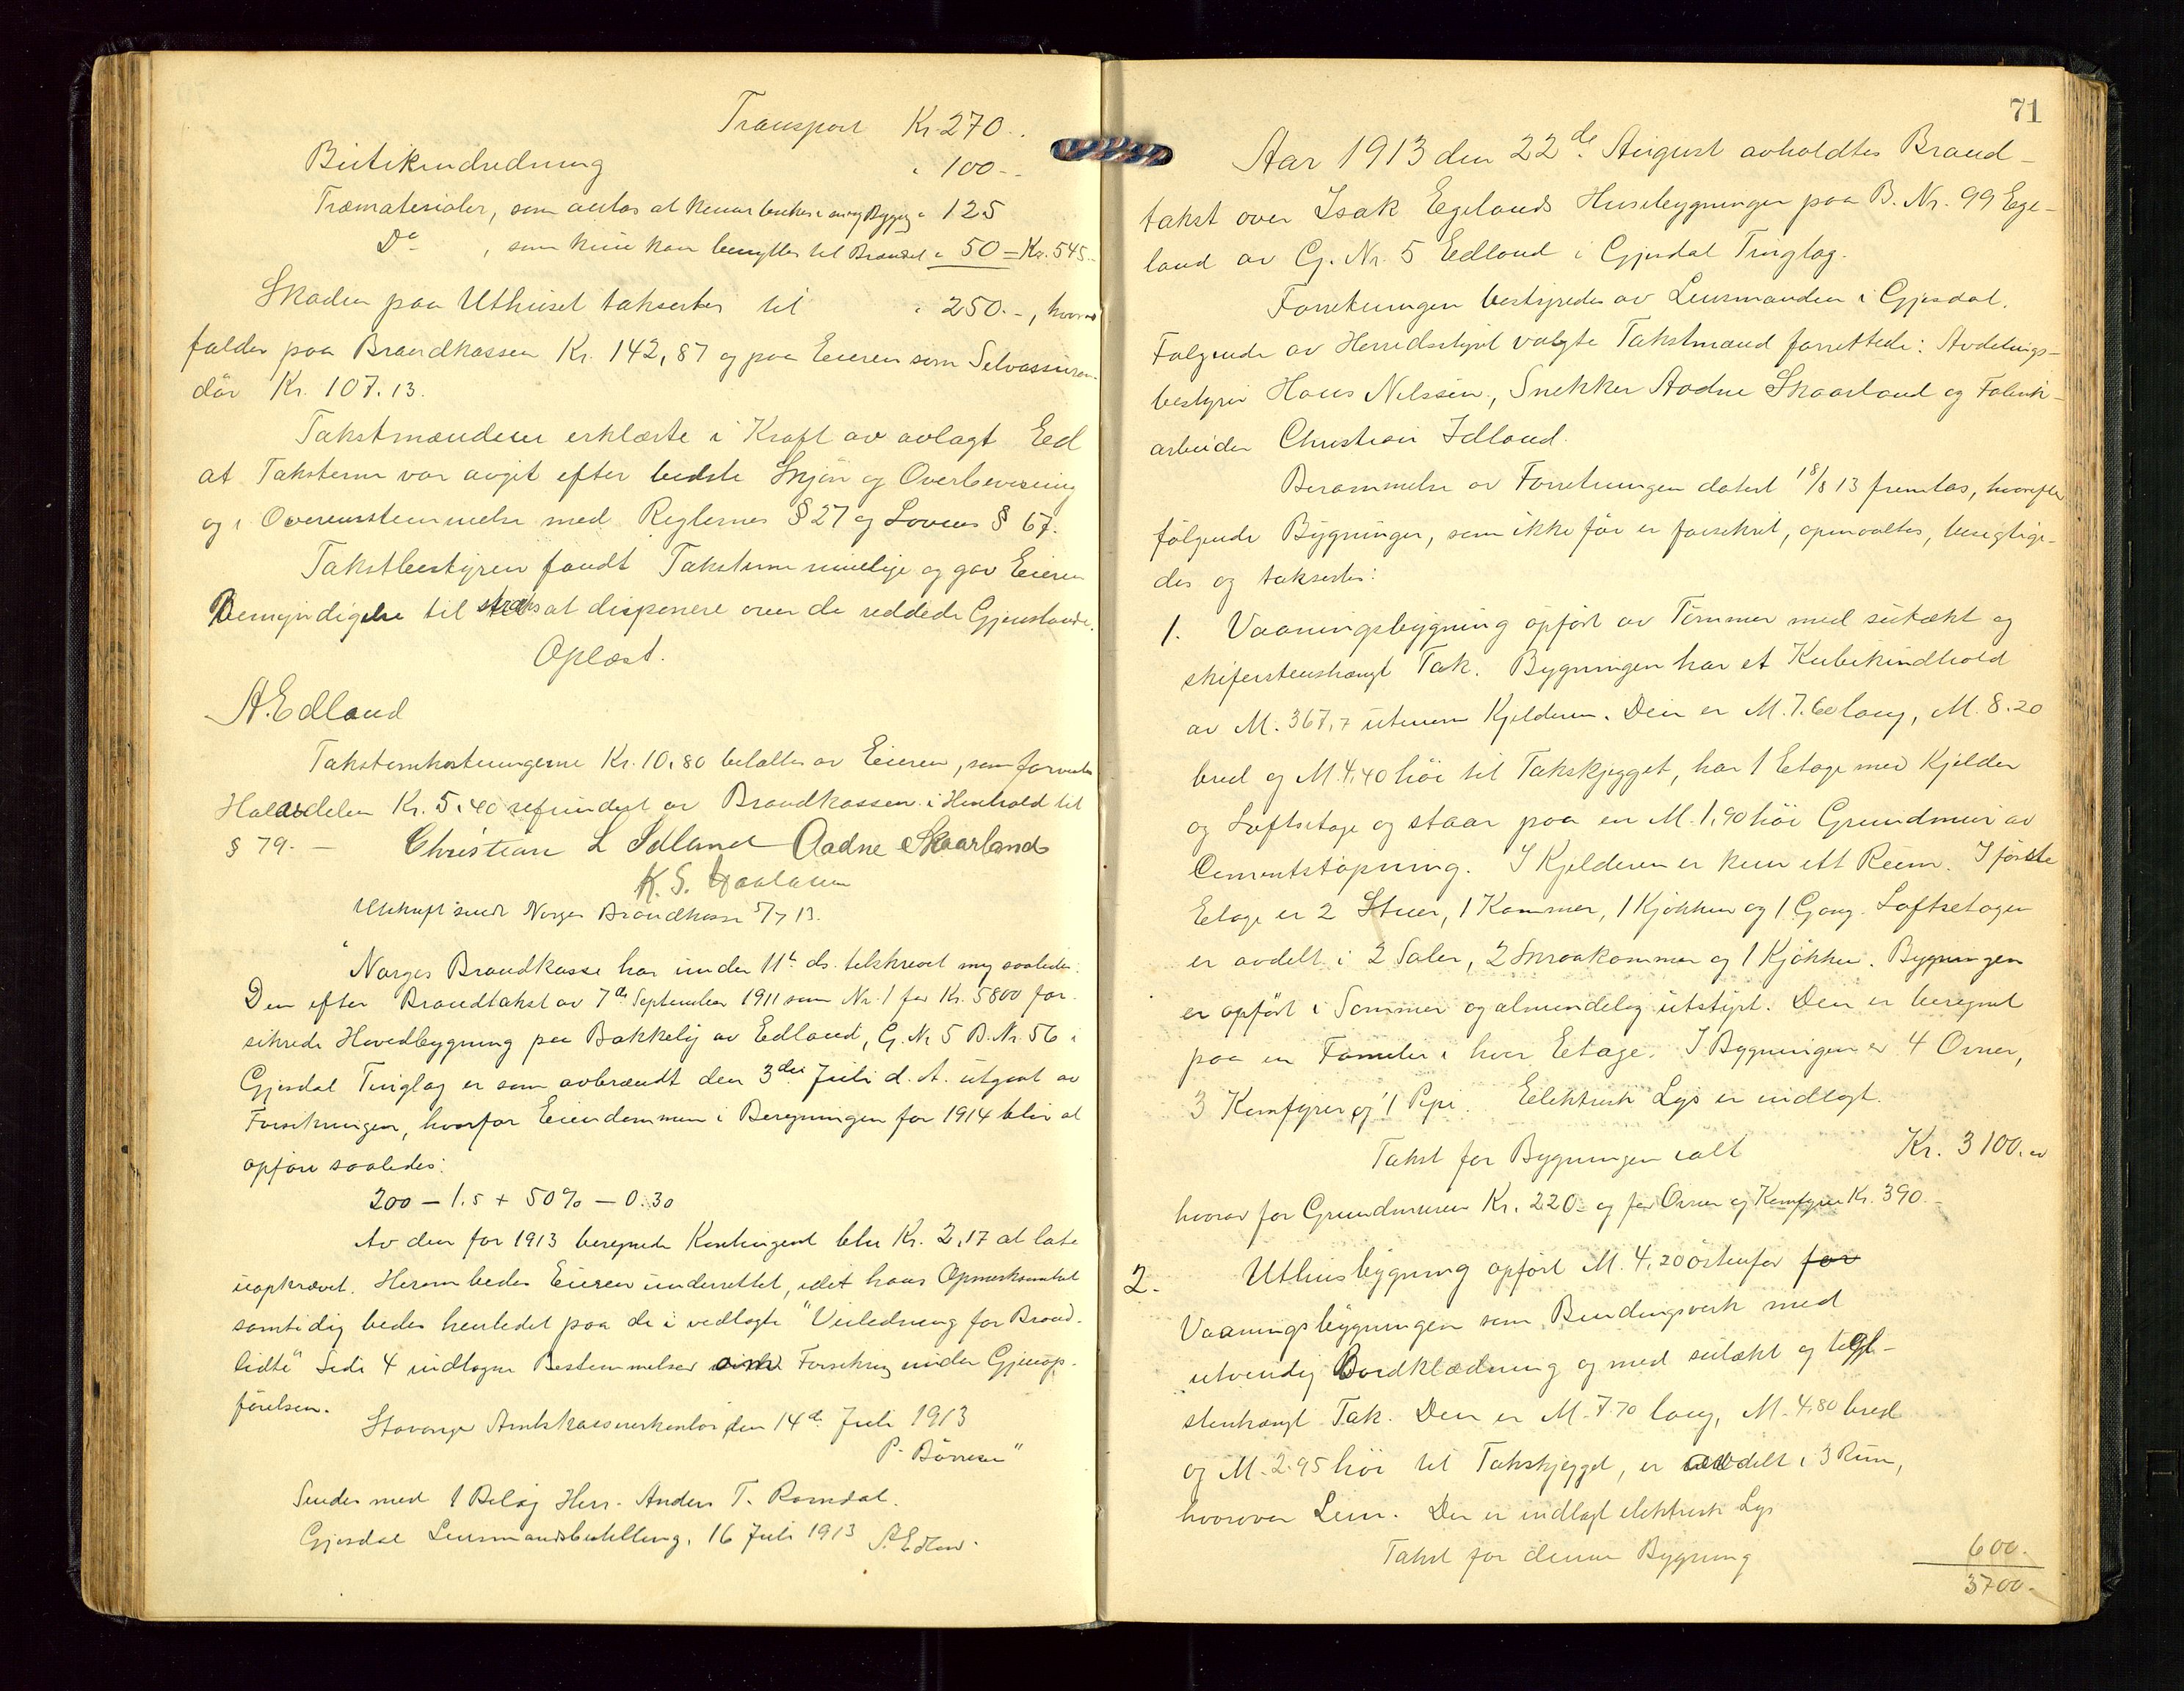 Transport Kr. 270.-
Butikindredning " 100.-
Træmaterialer, som antas at kunne brukes i anden Bygg. " 125
Do , som kun kan benyttes til Brændsel " 50 = Kr. 545.-
Skaden paa Uthuset taksertes til " 250.-, hvorav
falder paa Brandkassen Kr. 142,87 og paa Eieren som Selvassuran-
dör Kr. 107.13.
Takstmændene erklærte i Kraft av avlagt Eed
at Taksterne var avgit efter bedste Skjön og Overbevisning
og i Overensstemmelse med Reglernes § 27 og Lovens § 67.
Takstbestyreren fandt Taksterne rimelige og gav Eieren
Bemyndigelse til straks at disponere over de reddede Gjenstande.
Oplæst.
A. Edland
Takstomkostningerne Kr. 10.80 betaltes av Eieren, som forventer
Halvdelen Kr. 5.40 refundert av Brandkassen i Henhold til
§ 79.- Christian L Idland Aadne Skaarland
K. S.
Utskrift sendt Norges Brandkasse 5/7 13.
"Norges Brandkasse har under 11te ds. tilskrevet mig saaledes:
Den efter Brandtakst av 7de September 1911 som Nr. 1 for Kr. 5800 for-
sikrede Hovedbygning paa Bakkely av Edland, G. Nr 5 B. Nr. 56 i
Gjesdal Tinglag er som avbrændt den 3die Juli d. A. utgaat av
Forsikringen, hvorfor Eiendommen i Beregningen for 1914 blir at
opföre saaledes:
200 - 1.5 + 50% - 0.30
Av den for 1913 beregnede Kontingent blir Kr. 2,17 at late
uopkrævet. Herom bedes Eieren underrettet, idet hans Opmerksomhet
samtidig bedes henledet paa de i vedlagte "Veiledning for Brand-
lidte" Side 4 indtagne Bestemmelser om Forsikring under Gjenop-
förelsen.
Stavanger Amtskasserkontor den 14de Juli 1913
P. Börresen"
Sendes med 1 Bilag Herr. Anders T. Ramdal.
Gjesdal Lensmandsbestilling, 16 Juli 1913 A. Edland.
71
Aar 1913 den 22de August avholdtes Brand-
takst over Isak Egelands Husebygninger paa B. Nr. 99 Ege-
land av G. Nr. 5 Edland i Gjesdal Tinglag.
Forretningen bestyredes av Lensmanden i Gjesdal.
Følgende av Herredsstyret valgte Takstmænd forrettede: Avdelings-
bestyrer Hans Nilssen, Snekker Aadne Skaarland og Fabrik-
arbeider Christian Idland.
Berammelse av Forretningen datert 18/8 13 fremlas, hvorefter
följende Bygninger, som ikke för er forsikret, opmaaltes, besigtige-
des og takserter:
1. Vaaningsbygning opfört av Tömmer med sutækt og
skiferstenshængt Tak. Bygningen har et Kubikindhold
av M. 367,7 utenom Kjelderen. Den er M. 7.60 lang, M. 8.20
bred og M. 4,40 höi til Takskjegget, har 1 Etage med Kjelder
og Loftsetage og staar paa en M. 1,90 höi Grundmur av
Cementstöpning. I Kjelderen er kun ett Rum. I förste
Etage er 2 Stuer, 1 Kammer, 1 Kjökken og 1 Gang. Loftsetagen
er avdelt i 2 Saler, 2 Smaakammer og 1 Kjökken. Bygningen
er opfört i Sommer og almindelig utstyrt. Den er beregnet
paa en Familie i hver Etage. I Bygningen er 4 Ovner,
3 Komfyrer og 1 Pipe. Elektrisk Lys er indlagt.
Takst for Bygningen ialt Kr. 3100.-
hvorav for Grundmuren Kr. 220.- og for Ovner og Komfyrer Kr. 390.-
2. Uthusbygning opfört M. 4,20 östenfor for
Vaaningsbygningen som Bindingsverk med
utvendig Bordklædning og med sutækt og tegl-
stenhængt Tak. Den er M. 7.70 lang, M. 4,80 bred
og M. 2.95 höi til Takskjegget, er avdelt i 3 Rum,
hvorover Lem. Der er indlagt elektrisk Lys
Takst for denne Bygning 600.-
3700.-